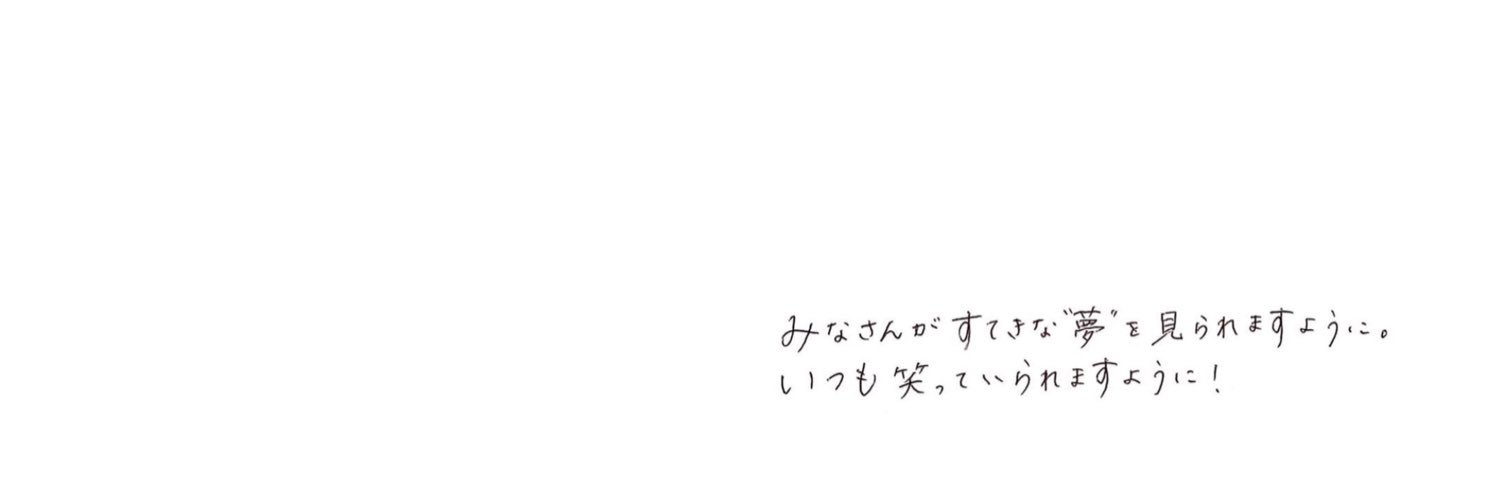 みなさんがすてきな"夢"を見られますように。
いつも笑っていられますように！